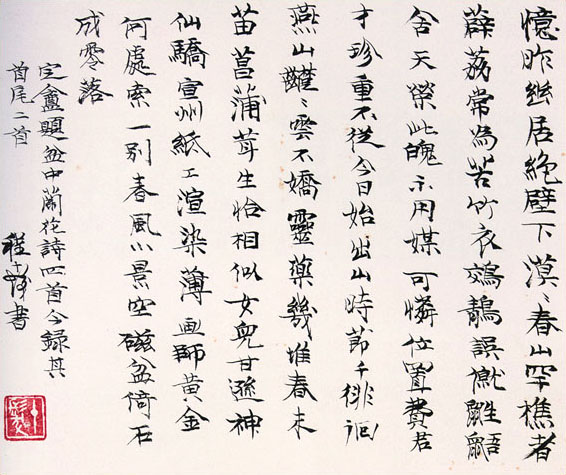 憶昨幽居絕壁下漠〻春山罕樵者
薜荔常為苦竹衣鵁鶄誤僦鼪鼯
舍天榮此魄不用媒可憐位置費君
才珍重不從今日始出山時節千徘徊
燕山〻雲不嬌靈藥幾堆春未
苗菖蒲茸生恰相似女兒甘遜神
仙驕宣州紙工渲染薄畫師黃金
何處索一別春風小景空磁盆倚石
成零落
定盦題盆中蘭花詩四首今錄其
首尾二首
程十髮書